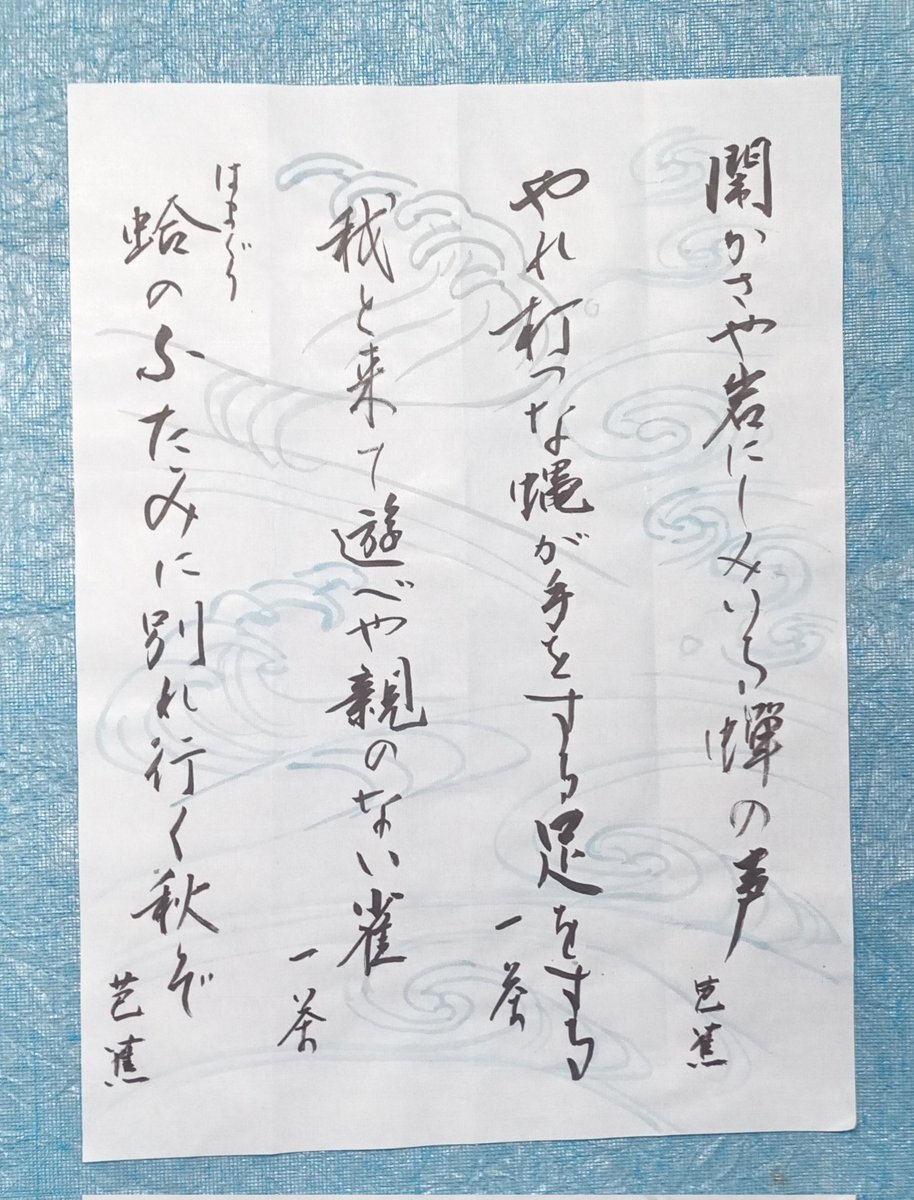 閑かさや岩にしみいる蝉の声
芭蕉
やれ打つな蝿が手をする足をする
一茶
我と来て遊べや親のない雀
一茶
はまぐり
蛤のふたみに別れ行く秋ぞ
芭蕉